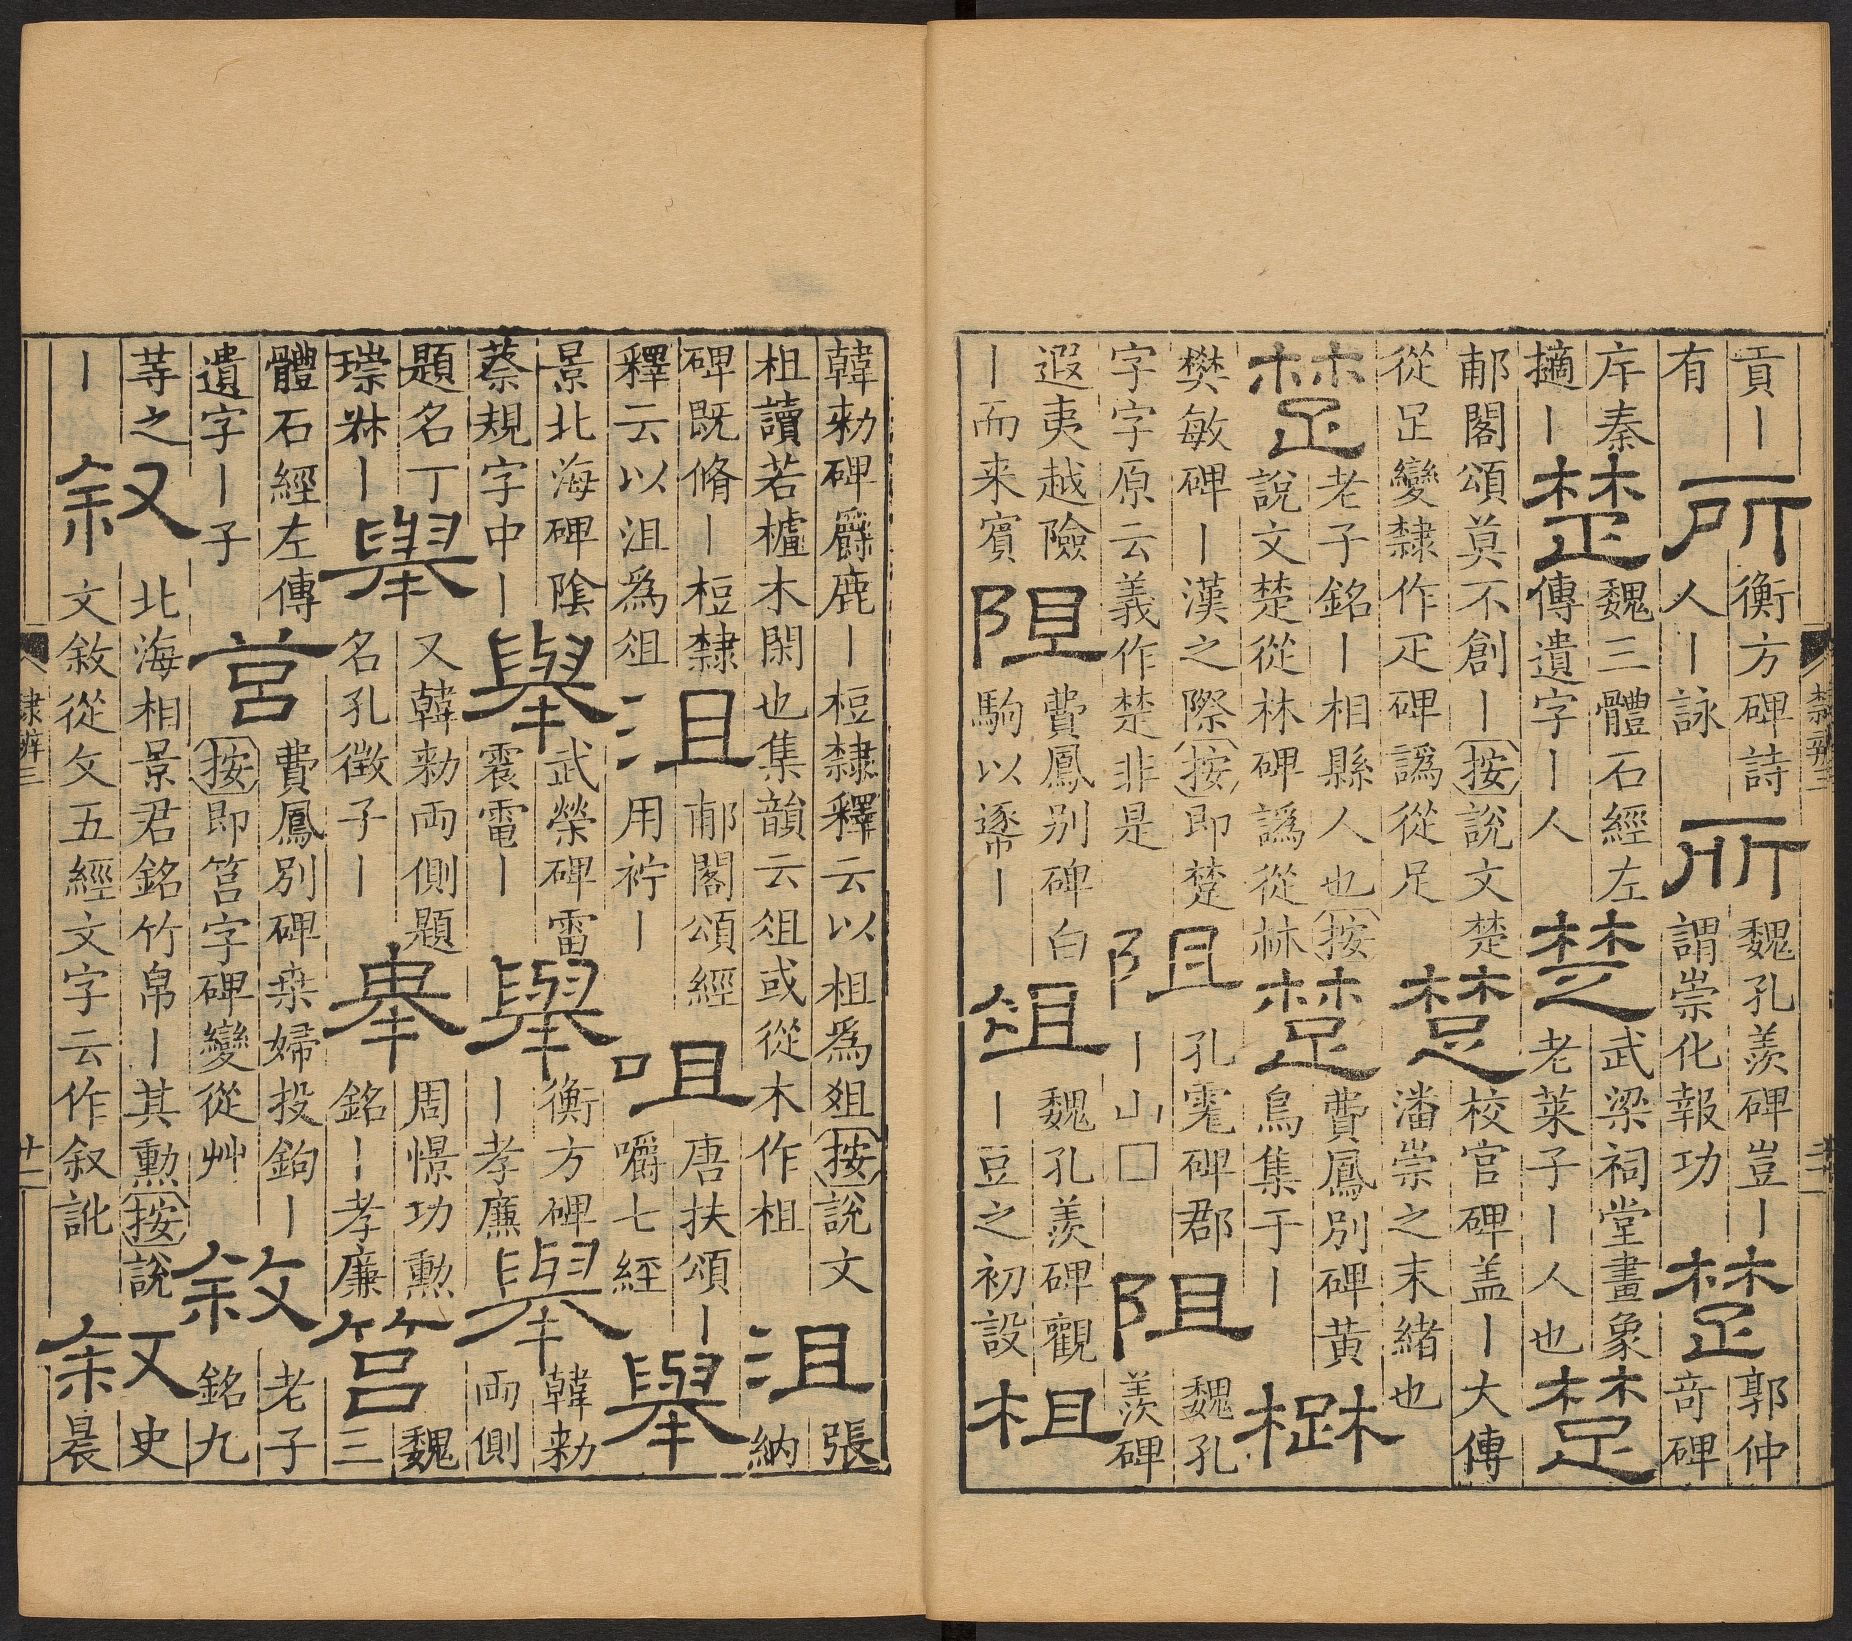 貢丨
有
所
衡方碑詩
人丨詠
所
魏孔羨碑豈丨
謂崇化報功
楚
郭仲
奇碑
序秦
擿丨
楚
魏三體石經左
傳遺字丨人
楚
武梁祠堂畫象
老萊子丨人也
楚
郙閣頌莫不創丨按說文楚
從𤴓變隸作疋碑譌從足
楚
校官碑盖丨大傳
潘崇之末緒也
楚
老子銘丨相縣人也按
說文楚從林碑譌從𣏟
楚
費鳳别碑黃
鳥集于丨
樊敏碑丨漢之際按即楚
字字原云義作楚非是
阻
孔碑郡
丨山□
阻
魏孔
羨碑
遐夷越險
丨而来賓
阻
費鳳别碑白
駒以逐丨
俎
魏孔羨碑觀
丨豆之初設
柤
韓勑碑爵鹿丨梪隸釋云以柤爲俎按說文
柤讀若樝木閑也集韻云俎或從木作柤
沮
張
納
碑既脩丨梪隸
釋云以沮爲俎
沮
郙閣頌經
用衿丨
咀
唐扶頌丨
嚼七經
舉
景北海碑陰
蔡規字中丨
舉
武榮碑雷
震電丨
舉
衡方碑
丨孝廉
舉
韓勑
兩側
題名丁
琮丨
舉
又韓勑兩側題
名孔徵子丨
舉
周憬功勲
銘丨孝廉
筥
魏
三
體石經左傳
遺字丨子
莒
費鳳别碑桒婦投鉤丨
按即筥字碑變從艸
敘
老子
銘九
等之
丨
叙
北海相景君銘竹帛丨其勳按說
文敘從攵五經文字云作叙訛
叙
史
晨
隸辨三
十二